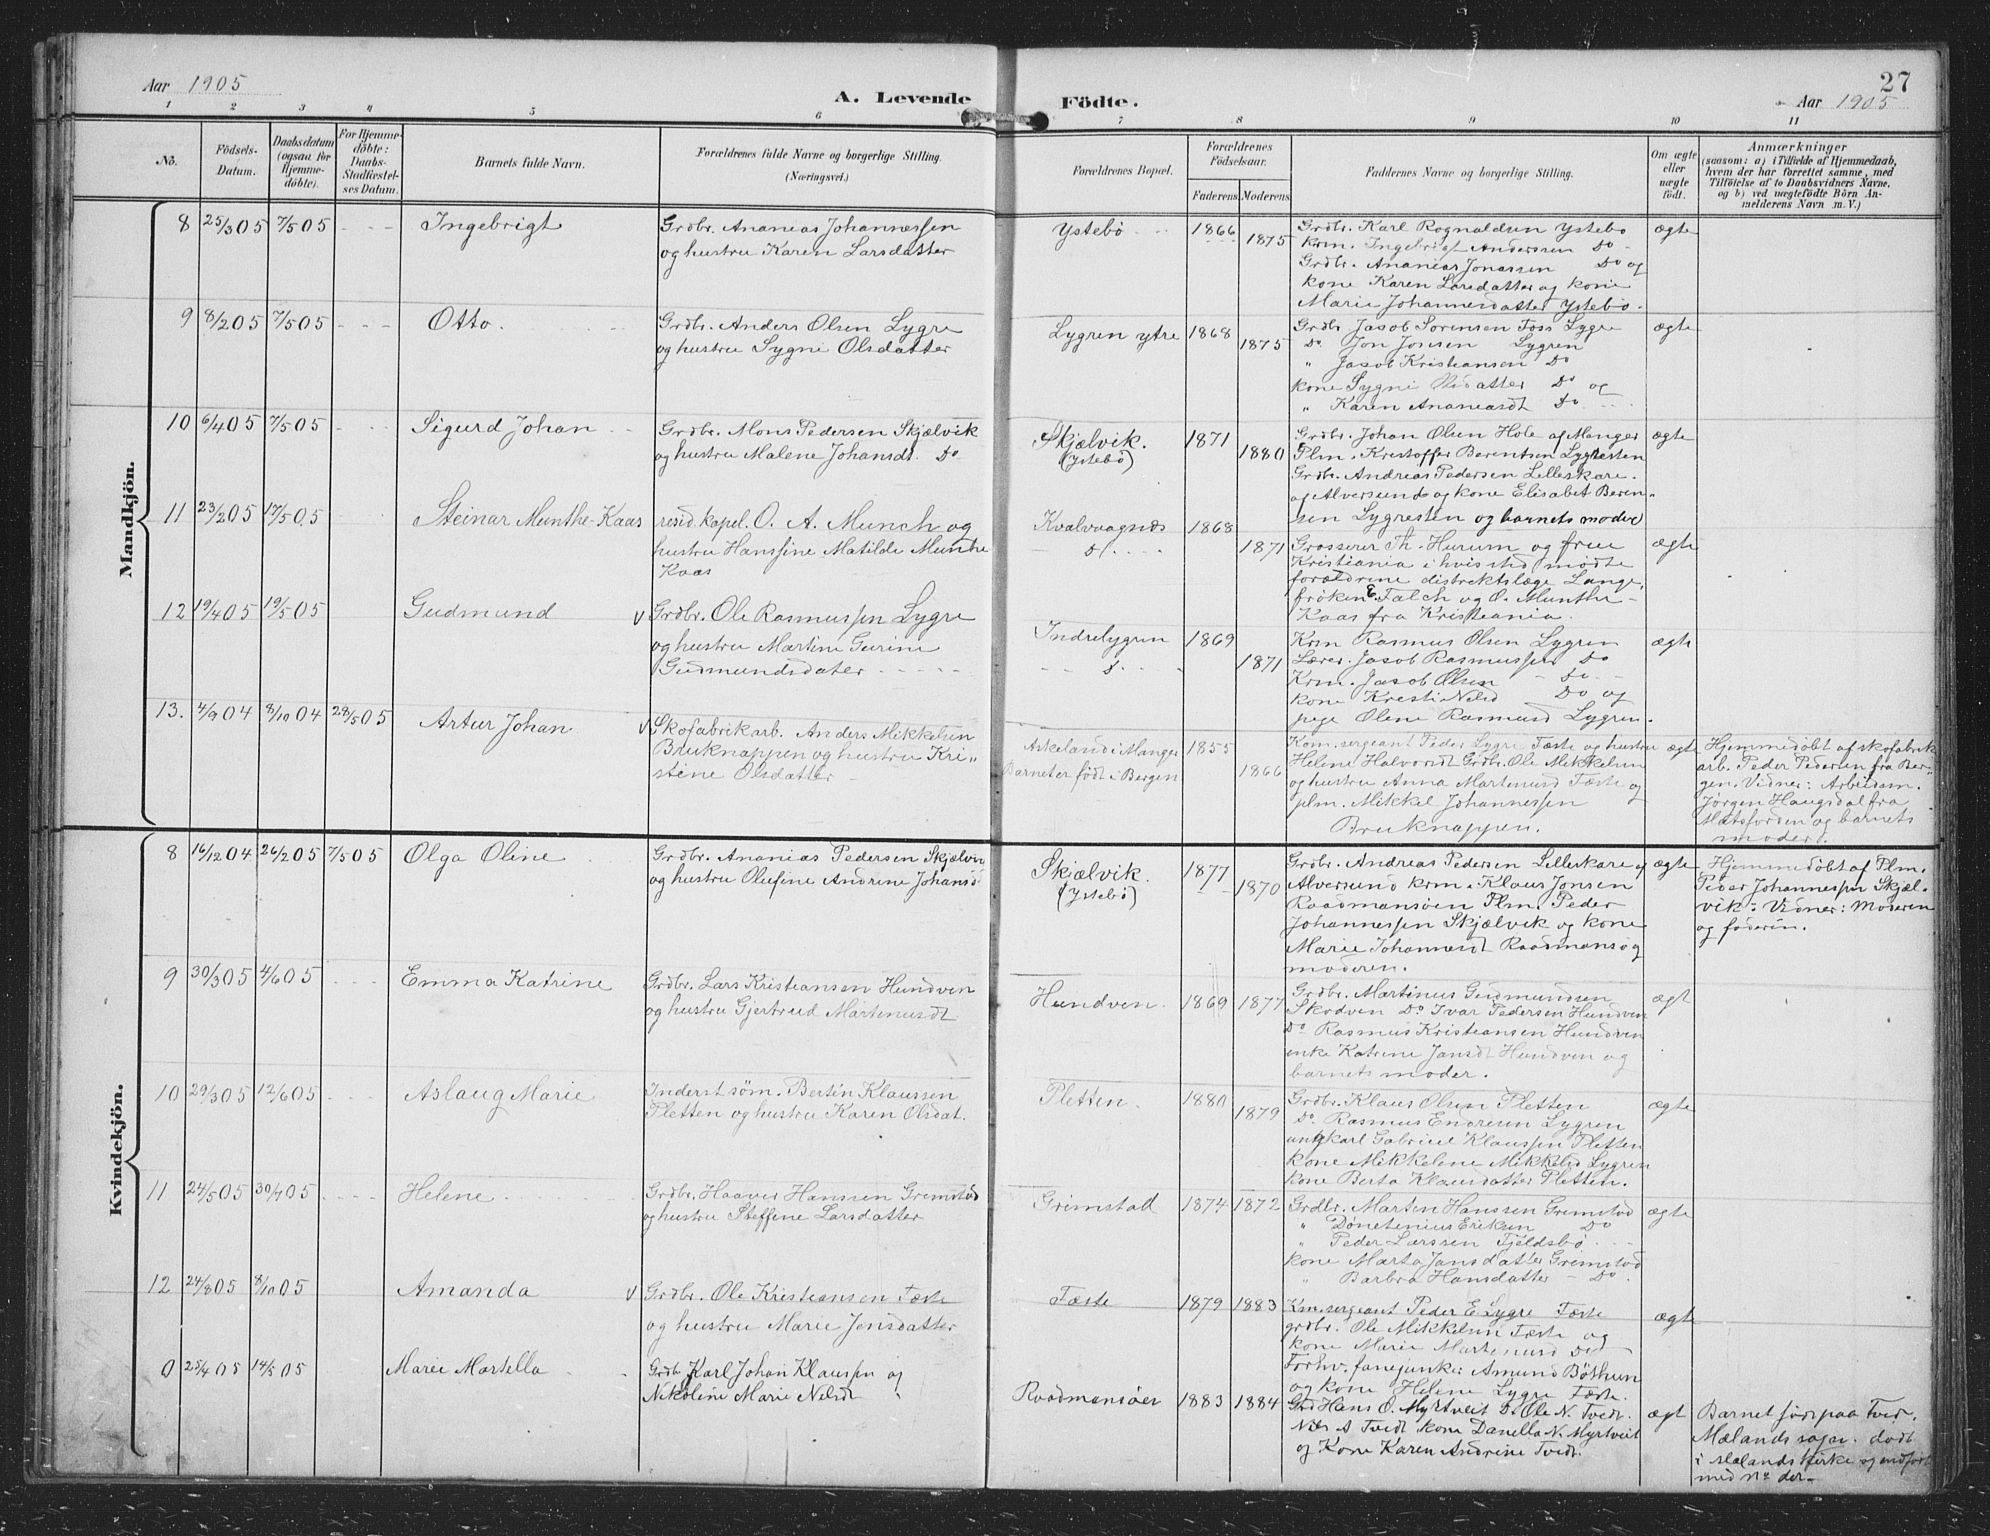 Aar 1905
A. Levende Födte.
27
Aar 1905
1 2 3 4 5 6 7 8 9 10 11
No.
Födsels-
Datum.
Daabsdatum
(ogsaa for
Hjemme-
döbte).
For Hjemme-
döbte:
Daabs-
Stadfæstel-
ses Datum.
Barnets fulde Navn.
Forældrenes fulde Navne og borgerlige Stilling.
(Næringsvei.)
Forældrenes Bopæl.
Forældrenes
Födselsaar.
Faderens Moderens
Faddernes Navne og borgerlige Stilling.
Om ægte
eller
uægte
födt.
Anmærkninger
(saasom: a) i Tilfælde af Hjemmedaab,
hvem der har forrettet samme, med
Tilföielse af to Daabsvidners Navne,
og b) ved uægtefödte Börn An-
mælderens Navn m. V.)
Mandkjön.
8 25/3 05 7/5 05 Ingebrigt
Grdbr. Ananias Johannessen
og hustru Karen Larsdatter
Ystebö 1866 1875
Grdbr. Karl Rognaldsen Ystebö
krm. Ingebrigt Anderssen Do
Grdbr. Ananias Jonassen Do og
kone Karen Larsdatter og kone
Marie Johannesdatter Ystebö.
ægte
9 8/2 05 7/5 05 Otto.
Grdbr. Anders Olsen Lygre
og hustru Sygni Olsdatter
Lygren ytre 1868 1875
Grdbr Jacob Sörensen Foss Lygre
Do Jon Jonsen Lygren
" Jacob Kristiansen Do
kone Sygni Olsdatter Do og
" Karen Ananiasdt Do
ægte
10 6/4 05 7/5 05 Sigurd Johan
Grdbr. Mons Pedersen Skjælvik
og hustru Malene Johansdt. Do
Skjælvik.
(Ystebö)
1871 1880
Grdbr. Johan Olsen Hole af Manger
Plm. Kristoffer Berentsen Lygresten
Grdbr. Andreas Pedersen Lilleskare
og Alversund og kone Elisabet Beren-
sen Lygresten og barnets moder
ægte
11 23/2 05 17/5 05 Steinar Munthe-Kaas
resid. kapel. O. A. Munch og
hustru Hanssine Matilde Munthe
Kaas
Kvalvaagnes
D.
1868 1871
Grosserer Th. Hurum og frue
Kristiania i hvis sted mödte
forældrene distriktslæge Lange,
fröken E Falch og O. Munthe-
Kaas fra Kristiania.
ægte
12 19/4 05 19/5 05 Gudmund
v Grdbr. Ole Rasmussen Lygre
og hustru Martine Gurine
Gudmundsdater
Indrelygren
D.
1869 1871
Krm Rasmus Olsen Lygren
Lærer. Jacob Rasmussen Do
Krm. Jacob Olsen Do
kone Kristi Nelsd Do og
pige Oline Rasmusd Lygren.
ægte
13. 4/9 04 8/10 04 28/5 05 Artur Johan
v Skofabrikarb. Anders Mikkelsen
Bruknappen og hustru Kri-
stine Olsdatter
Askeland i Manger
Barnet er födt i Bergen
1855 1866
Kom.sergeant Peder Lygre Fæste og hustru
Helene Halvorsdt Grdbr. Ole Mikkelsen
og hustru Anna Martinusd Fæste og
plm. Mikkel Johannessen
Bruknappen.
ægte
Hjemmedöbt af skofabrik
arb. Peder Pedersen fra Ber-
gen. Vidner: Arbeidsm.
Jörgen Haugsdal fra
Matsforden og barnets
moder.
Kvindekjön.
8 16/12 04 26/2 05 7/5 05 Olga Oline
Grdbr. Ananias Pedersen Skjælvig
og hustru Olufine Andrine Johansd
Skjælvik.
(Ystebö)
1877 1870
Grdbr. Andreas Pedersen Lilleskare
Alversund krm. Klaus Jonsen
Raadmansöen Plm. Peder
Johannessen Skjælvik og kone
Marie Johannesdt Raadmansö og
moderen.
ægte
Hjemmedöbt af Plm.
Peder Johannessen Skjæl-
vik: Vidner: Moderen
og faderen.
9 30/3 05 4/6 05 Emma Katrine
Grdbr. Lars Kristiansen Hundven
og hustru Gjertrud Martinusdt
Hundven. 1869 1877
Grdbr. Martinus Gudmundsen
Skodven Do Ivar Pedersen Hundven
Do Rasmus Kristiansen Hundven
enke Katrine Jansdt Hundven og
barnets moder.
ægt
10 29/3 05 12/6 05 Aslaug Marie
Inderst söm. Bertin Klaussen
Pletten og hustru Karen Olsdat.
Pletten. 1880 1879
Grdbr. Klaus Olsen Pletten
Do Rasmus Endresen Lygren
ungkarl Gabriel Klaussen Pletten
kone Mikkeline Mikkelsd Lygren
kone Berta Klausdatter Pletten.
ægte
11 24/5 05 30/7 05 Helene
Grdbr. Haaver Hanssen Grimstad
og hustru Steffine Larsdatter
Grimstad 1874 1872
Grdbr. Martin Hanssen Grimstad
" Dönetinius Eriksen Do
" Peder Larssen Fjeldsbö
kone Marta Jansdatter Grimstad
" Barbra Hansdatter Do.
ægte
12 24/8 05 8/10 05 Amanda
v Grdbr. Ole Kristiansen Fæste
og hustru Marie Jensdatter
Fæste 1879 1883
Km.sergeant Peder E. Lygre Fæste
grdbr. Ole Mikkelsen Fæste og
kone Marie Martinusd Do
Forhv. fanejunker Amund Böthun
og kone Helene Lygre Fæste.
ægte
0 25/4 05 14/5 05 Marie Martella
Grdb Karl Johan Klaussen og
Nikoline Marie Nelsdt
Raadmansöen 1883 1884
Grd Hans O. Myrtveit Do Ole N. Tvedt.
Nils A Tvedt kone Danella N. Myrtveit
og Kone Karen Andrine Tvedt
ægt
Barnet födt paa Tved,
Mælands sogn. döbt
i Mælands kirke og indfört
med No der